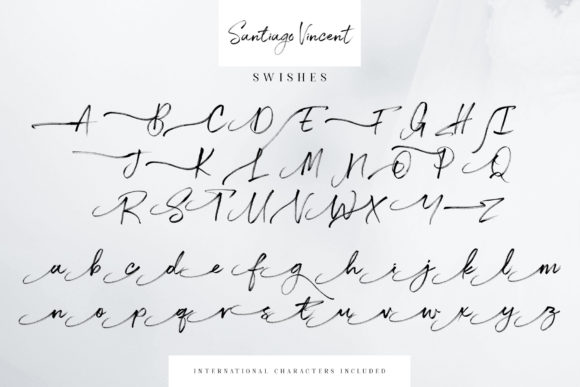 Santiago Vincent
SWISHES
A B C D E F G H I
J K L M N O P Q
R S T U V W X Y Z
a b c d e f g h i j k l m
n o p q r s t u v w x y z
INTERNATIONAL CHARACTERS INCLUDED